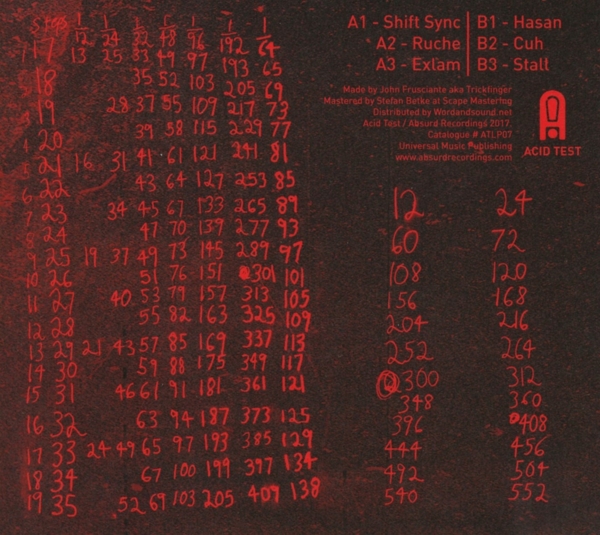 1/12 1/24 1/32 1/48 1/96 1/192 1/64
1 17 13 25 33 49 97 193 65
18 35 52 103 205 69
19 28 37 55 109 217 73
4 20 39 58 115 229 77
5 21 16 31 41 61 121 241 81
6 22 43 64 127 253 85
7 23 34 45 67 133 265 89
8 24 47 70 139 277 93
9 25 19 37 49 73 145 289 97
10 26 51 76 151 301 101
11 27 40 53 79 157 313 105
12 28 55 82 163 325 109
13 29 21 43 57 85 169 337 113
14 30 59 88 175 349 117
15 31 46 61 91 181 361 121
16 32 63 94 187 373 125
17 33 24 49 65 97 193 385 129
18 34 67 100 199 397 134
19 35 52 69 103 205 409 138
A1 - Shift Sync
A2 - Ruche
A3 - Exlam
B1 - Hasan
B2 - Cuh
B3 - Stall
Made by John Frusciante aka Trickfinger
Mastered by Stefan Betke at Scape Mastering
Distributed by Wordandsound.net
Acid Test / Absurd Recordings 2017.
Catalogue # ATLP07
Universal Music Publishing
www.absurdrecordings.com
ACID TEST
12 24
60 72
108 120
156 168
204 216
252 264
300 312
348 360
396 408
444 456
492 504
540 552